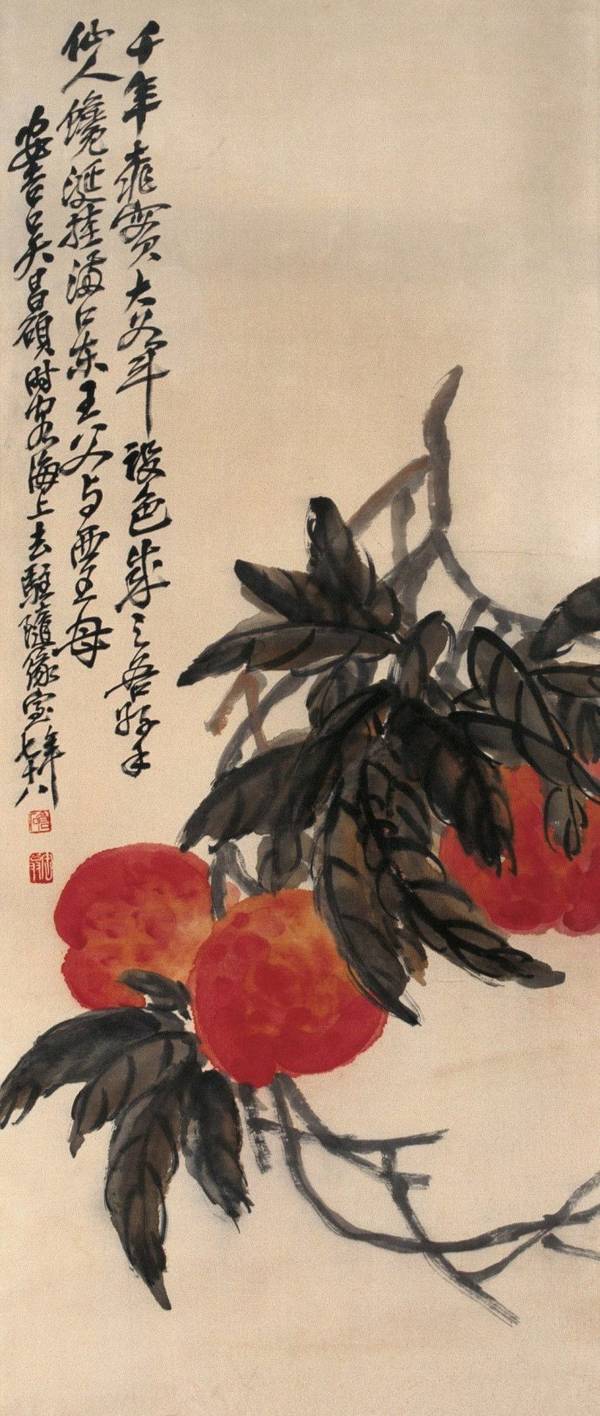 千年桃實大如斗設色成之吾好手
仙人饞涎挂滿口東王父與西王母
安吉吳昌碩時客海上去駐隨緣室年七十八